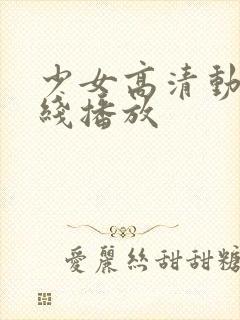 少女高清動
綫播放
愛麗絲甜甜糖